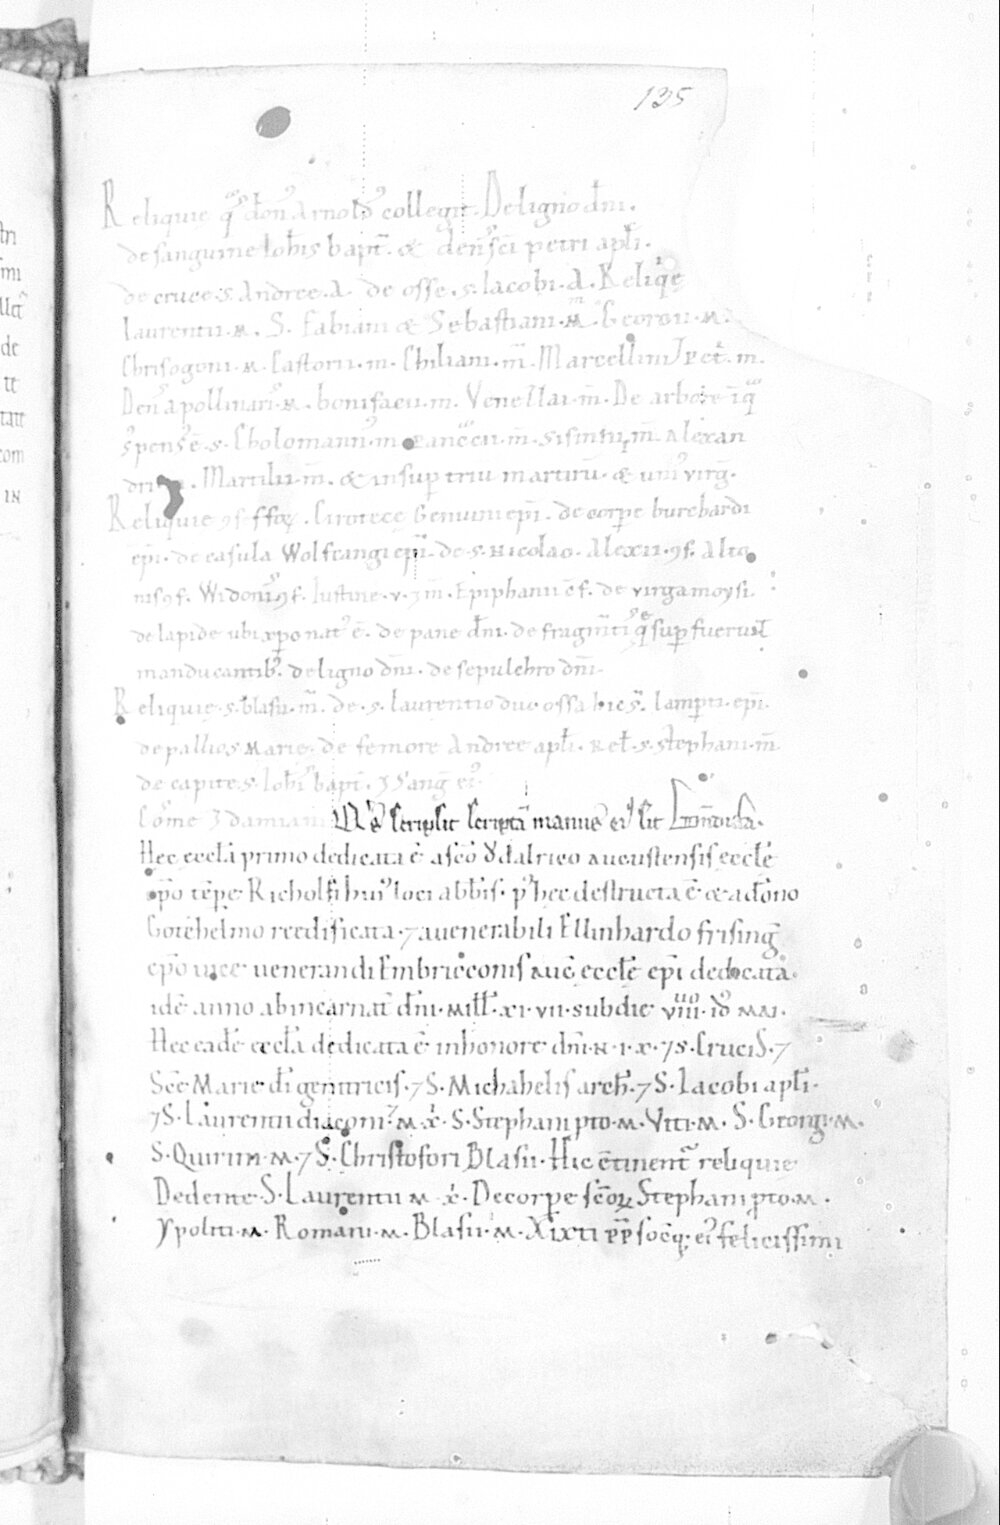 135
Reliquie q̅s don̅ Arnold᷒ collegit. De ligno dn̅i.
de sanguine Ioh̅is bapt̅. & den̅ sc̅i petri apl̅i.
de cruce .S. Andree .A. de osse .s. Iacobi .A. Reliqͥe
Laurentii .M. S. Fabiani & Sebastiani .M̅. Georgii .M.
Chrisogoni .M. Castorii .m. Chiliani .m̅. Marcellini & Pet̅. m.
Den᷒ apollinaris .M. bonifacii .m. Venezlai .m̅. De arbore i̅ q̅
s᷒pens᷒ e̅ .s. Cholomann᷒ .m. Pancͣcii .m̅. Sisinnii .m̅. Alexan
dri . Martilii .m̅. & insup̱ triu̅ martiru̅. & uni᷒ virg̅.
Reliquie ꝯfessoꝝ. Cirotece Genuini ep̅i. de corp̱e burchardi
ep̅i. de casula Wolfcangi ep̅i. de .s. Nicolao. Alexii .ꝯf. Alto
nis ꝯf. Widonis᷒ ꝯf. Iustine .v. ⁊ m̅. Epiphanii c̅f. de virga moysi.
de lapide ubi xp̅o nat᷒ e̅. de pane dn̅i. de fragm̅tis q̅ sup̱fuerunt
manducantib᷒. de ligno dn̅i. de sepulchro dn̅i.
Reliquie .s. blasii .m̅. de .s. Laurentio duo ossa hic s̅. Lamp̱ti .ep̅i.
de pallio .s. Marie. de femore Andree apl̅i. Rel̅ .s. Stephani .m̅.
de capite .s. Ioh̅is bapt̅. ⁊ Sang̅ ei᷒.
Cosme ⁊ damiani Q̅ scripsit scripta̅ manus ei᷒ sit b̅ndicta.
Hec eccl̅a primo dedicata e̅ a sc̅o Ǒdalrico Augustensis eccl̅e
ep̅o te̅pe Richolfi hui᷒ loci abb̅is. p᷒ hec destructa e̅ & a do̅no
Gotehelmo reedificata. ⁊ a uenerabili Ellinhardo frising̅
ep̅o uice uenerandi Embriconis Aug̅ eccl̅e ep̅i dedicata.
ide̅ anno ab incarnat̅ dn̅i. Mill̅. xi. vii. sub die viiii. id᷒ Mai.
Hec eade̅ eccl̅a dedicata e̅ in honore dn̅i .N. I. X. ⁊ S. Crucis. ⁊
Sc̅e Marie di̅ genitricis. ⁊ S. Michahelis arch̅. ⁊ S. Iacobi apl̅i.
⁊ S. Laurentii diaconi ⁊ M. X. S. Stephani pto. M. Viti .M. S. Georgi .M.
S. Quirini .M. ⁊ S. Christofori Blasii. Hic c̅tinent᷒ reliquie
De dente .S. Laurentii M. X. De corp̱e sc̅oꝝ Stephani p̱to. M.
Ypoliti .M. Romani .M. Blasii .M. Xixti p̅p̅ socq; ei᷒ felicissimi